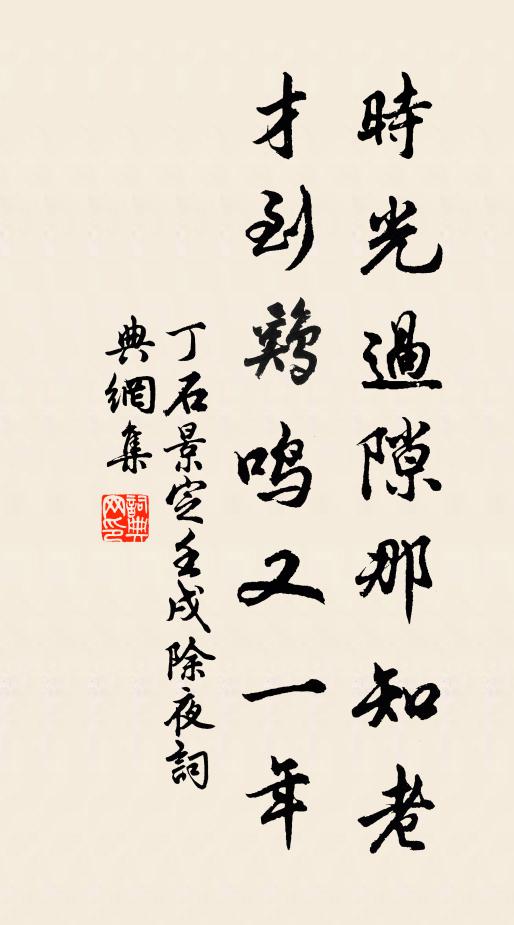 時光過隙那知老
才到鷄鳴又一年
丁石景定壬戌除夜詞
典網集
詞典網印